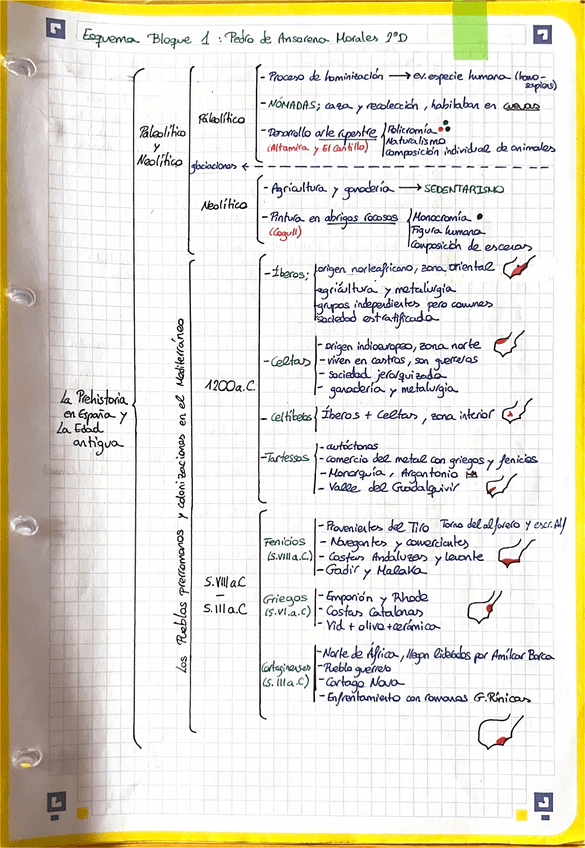 Esquema Bloque 1 : Pedro de Ansorena Morales 2ºD
La Prehistoria
en España y
La Edad
antigua
Paleolítico
y
Neolítico
Paleolítico
- Proceso de hominización → ev. especie humana (homo-
sapiens)
- NÓMADAS; caza y recolección, habitaban en cuevas
- Desarrollo arte rupestre
(Altamira y El Castillo)
Policromía
Naturalismo
composición individual de animales
glaciaciones
Neolítico
- Agricultura y ganadería → SEDENTARISMO
- Pintura en abrigos rocosos
(Cogull)
Monocromía
Figura humana
Composición de escenas
Los Pueblos prerromanos y colonizaciones en el Mediterráneo
1200 a.C.
- Íberos;
origen norteafricano, zona oriental
agricultura y metalurgia
grupos independientes pero comunes
sociedad estratificada
- Celtas
- origen indioeuropeo, zona norte
- viven en castros, son guerreros
- sociedad jerarquizada
- ganadería y metalurgia
- Celtíberos
Íberos + Celtas, zona interior
- Tartessos
- autóctonos
- comercio del metal con griegos y fenicios
- Monarquía, Argantonio
- Valle del Guadalquivir
S.VIII a.C
-
S.III a.C
Fenicios
(S.VIII a.C)
- Provenientes del Tiro Torno del alfarero y escr. Alf
- Navegantes y comerciantes
- Costas Andaluzas y levante
- Gadir y Malaka
Griegos
(S.VI.a.C)
- Emporión y Rhode
- Costas Catalanas
- Vid + olivo + cerámica
Cartagineses
(S. III a.C)
- Norte de África, llegan liderados por Amílcar Barca
- Pueblo guerrero
- Cartago Nova
- Enfrentamiento con romanos G. Púnicas